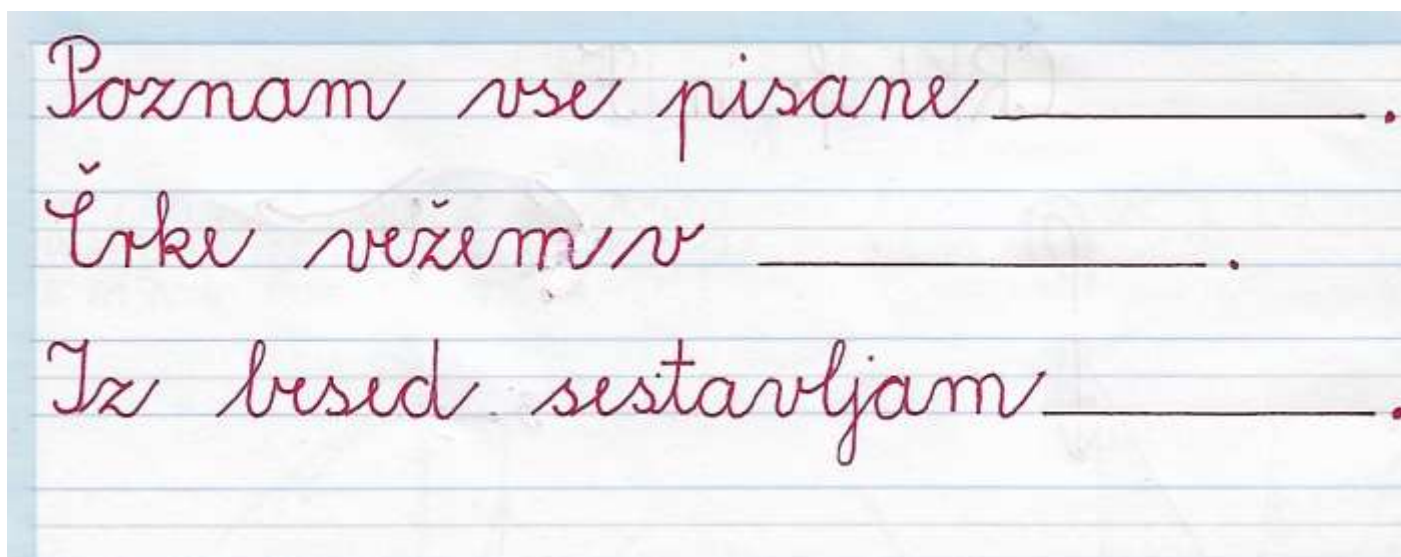 Poznam vse pisane __________.
Črke vežem v __________.
Iz besed sestavljam __________.